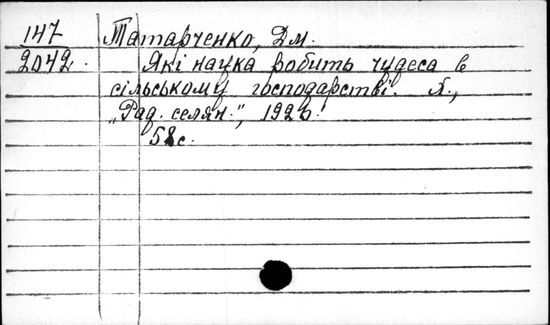 147 Татарченко, Дм.
2042. Які наука робить чудеса в
сільському господарстві. Х.,
„Рад. селян.", 192
58с.